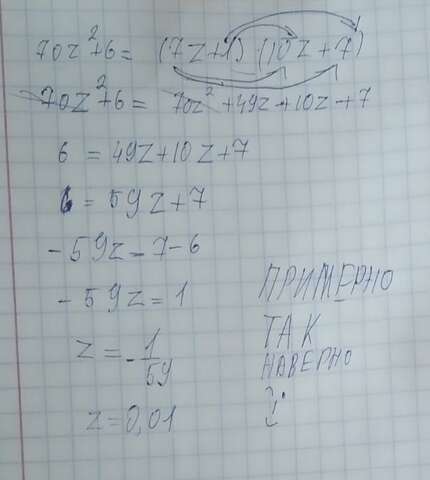 70z²+6 = (7z+1) (10z+7)
70z²+6 = 70z²+49z+10z+7
6 = 49z+10z+7
6 = 59z+7
-59z=7-6
-59z=1
z = -1/59
z=0,01
ПРИМЕРНО
ТАК
НАВЕРНО